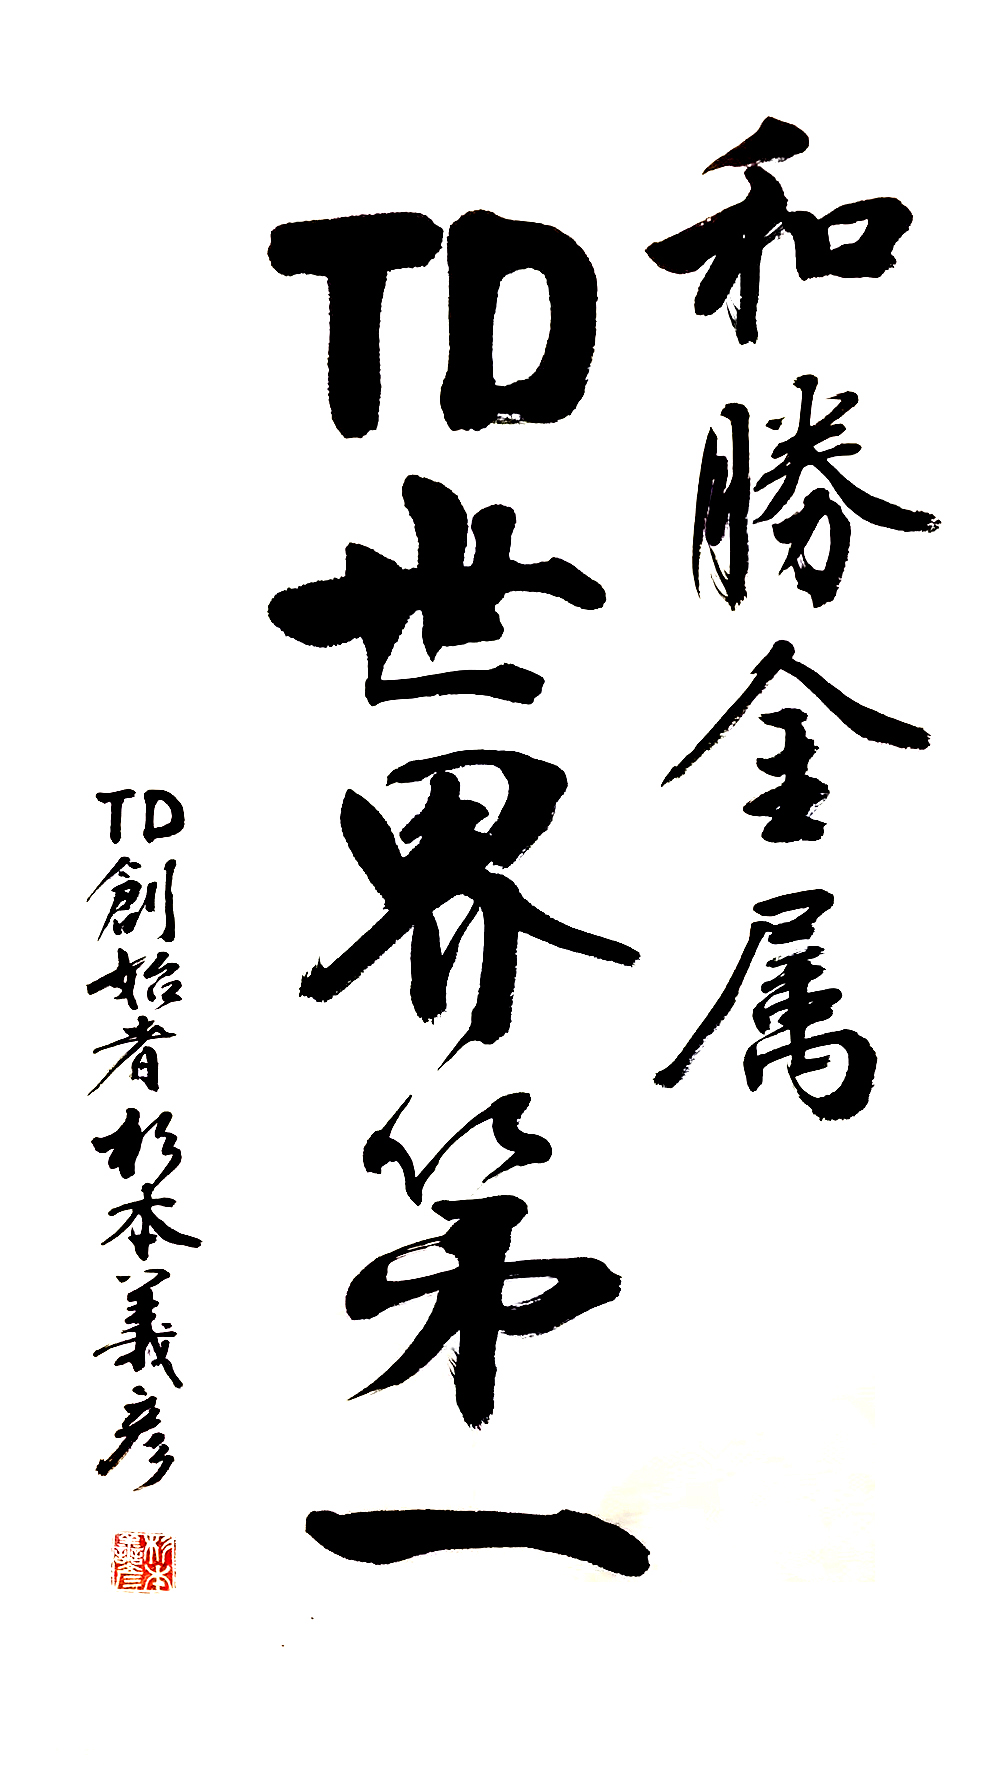 和勝金属
TD世界第一
TD創始者杉本義彦
杉本
義彦